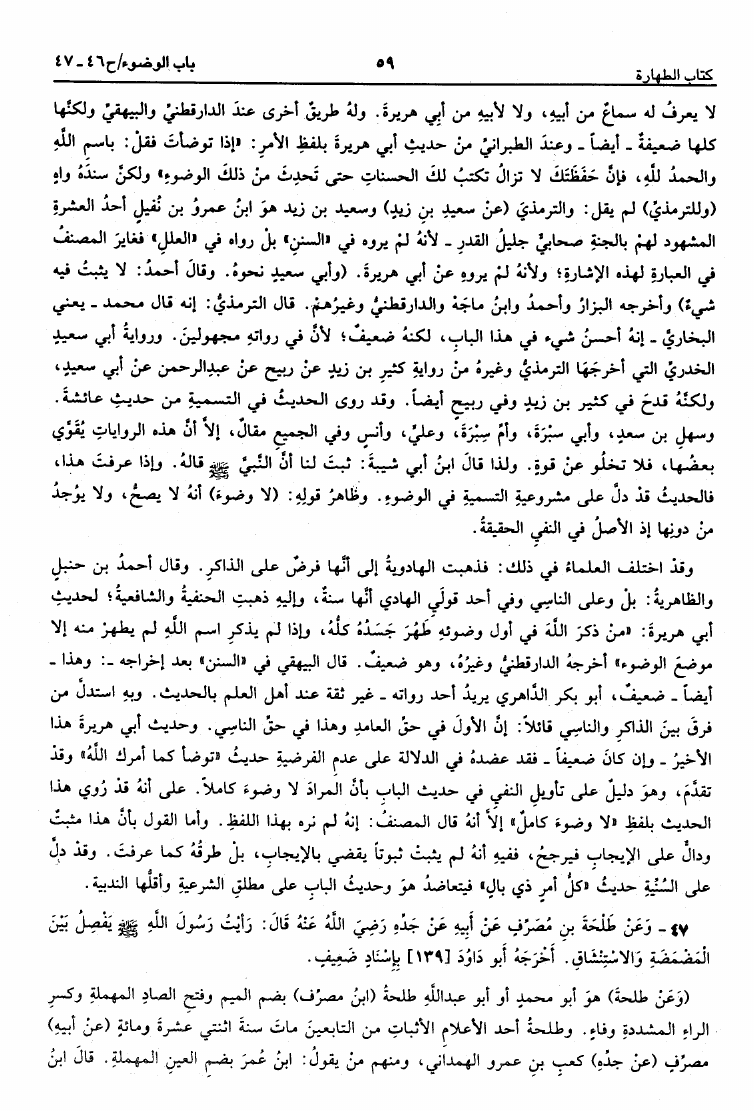 كتاب الطهارة ٥٩ باب الوضوء/ح٤٦ ـ ٤٧
لا يعرفُ له سماعٌ من أبيه، ولا لأبيه من أبي هريرةَ. ولهُ طريقٌ أخرى عندَ الدارقطنيِّ والبيهقيِّ ولكنَّها
كلها ضعيفةٌ ـ أيضاً ـ وعندَ الطبرانيِّ منْ حديثِ أبي هريرةَ بلفظِ الأمرِ: «إذا توضأتَ فقلْ: باسمِ اللَّهِ
والحمدُ للَّهِ، فإنَّ حَفَظَتَكَ لا تزالُ تكتبُ لكَ الحسناتِ حتى تَحدِثَ منْ ذلكَ الوضوءِ» ولكنَّ سندَهُ واهٍ
(وللترمذيِّ) لم يقل: والترمذيَّ (عنْ سعيدِ بنِ زيدٍ) وسعيد بن زيد هوَ ابنُ عمروِ بن نُفيلٍ أحدُ العشرةِ
المشهود لهمْ بالجنةِ صحابيٌّ جليلُ القدرِ ـ لأنهُ لمْ يروه في «السننِ» بلْ رواه في «العللِ» فغايرَ المصنفُ
في العبارةِ لهذه الإشارةِ؛ ولأنهُ لمْ يروهِ عنْ أبي هريرةَ. (وأبي سعيدٍ نحوهُ. وقالَ أحمدُ: لا يثبتُ فيه
شيءٌ) وأخرجه البزارُ وأحمدُ وابنُ ماجَهْ والدارقطنيُّ وغيرُهمْ. قال الترمذيُّ: إنه قال محمد ـ يعني
البخاريَّ ـ إنهُ أحسنُ شيء في هذا البابِ، لكنهُ ضعيفٌ؛ لأنَّ في رواتهِ مجهولينَ. وروايةُ أبي سعيدٍ
الخدريِّ التي أخرجَهَا الترمذيُّ وغيرُهُ منْ روايةِ كثيرِ بن زيدٍ عنْ ربيح عنْ عبدِالرحمن عنْ أبي سعيدٍ،
ولكنَّهُ قدحَ في كثير بن زيدٍ وفي ربيحٍ أيضاً. وقد روى الحديثُ في التسميةِ من حديثِ عائشةَ.
وسهلِ بن سعدٍ، وأبي سبْرَةَ، وأمِّ سِبْرَةَ، وعليٍّ، وأنسٍ وفي الجميعِ مقالٌ، إلاَّ أنَّ هذه الرواياتِ يُقَوِّي
بعضُها، فلا تخلُو عنْ قوةٍ. ولذا قالَ ابنُ أبي شيبةَ: ثبتَ لنا أنَّ النبيَّ ﷺ قالهُ. وإذا عرفتَ هذا،
فالحديثُ قدْ دلَّ على مشروعيةِ التسميةِ في الوضوءِ. وظاهرُ قولِهِ: (لا وضوءَ) أنهُ لا يصحُّ، ولا يوُجدُ
منْ دونِها إذ الأصلُ في النفي الحقيقةُ.
وقدْ اختلف العلماءُ في ذلك: فذهبت الهادويةُ إلى أنَّها فرضٌ على الذاكرِ. وقال أحمدُ بن حنبلٍ
والظاهريةُ: بلْ وعلى الناسِي وفي أحد قوليِ الهادي أنَّها سنةٌ، وإليهِ ذهبتِ الحنفيةُ والشافعيةُ؛ لحديثِ
أبي هريرةَ: «منْ ذكرَ اللَّهَ في أول وضوئهِ طَهُرَ جَسَدُهُ كلُّهُ، وإذا لم يذكرِ اسم اللَّهِ لم يطهرْ منه إلا
موضعَ الوضوءِ» أخرجهُ الدارقطنيُّ وغيرُهُ، وهو ضعيفٌ. قال البيهقي في «السنن» بعد إخراجه ـ: وهذا ـ
أيضاً ـ ضعيفٌ، أبو بكر الدَّاهري يريدُ أحد رواته ـ غير ثقة عند أهل العلم بالحديث. وبهِ استدلَّ من
فرقَ بينَ الذاكرِ والناسِي قائلاً: إنَّ الأولَ في حقِّ العامدِ وهذا في حقِّ الناسِي. وحديث أبي هريرةَ هذا
الأخيرُ ـ وإن كانَ ضعيفاً ـ فقد عضدهُ في الدلالة على عدمِ الفرضيةِ حديثُ «توضأ كما أمرك اللَّهُ» وقدْ
تقدَّمَ، وهوَ دليلٌ على تأويلِ النفيِ في حديث البابِ بأنَّ المرادَ لا وضوءَ كاملاً. على أنهُ قدْ رُوي هذا
الحديث بلفظ «لا وضوءَ كاملٌ» إلاَّ أنهُ قال المصنفُ: إنهُ لم نره بهذا اللفظِ. وأما القول بأنَّ هذا مثبتٌ
ودالٌّ على الإيجابِ فيرجحُ، ففيهِ أنهُ لم يثبتْ ثبوتاً يقضي بالإيجابِ، بلْ طرقُهُ كما عرفت. وقدْ دلَّ
على السُّنِّيةِ حديثُ «كلُّ أمرٍ ذي بالٍ» فيتعاضدُ هوَ وحديثُ البابِ على مطلقِ الشرعيةِ وأقلُّها الندبية.
٤٧ ـ وَعَنْ طَلْحَةَ بنِ مُصَرِّفٍ عَنْ أَبِيهِ عَنْ جَدِّهِ رَضِيَ اللَّهُ عَنْهُ قَالَ: رَأَيْتُ رَسُولَ اللَّهِ ﷺ يَفْصِلُ بَيْنَ
الْمَضْمَضَةِ وَالاسْتِنْشَاقِ. أَخْرَجَهُ أَبو دَاوُدَ [١٣٩] بِإِسْنَادٍ ضَعِيفٍ.
(وَعَنْ طلحةَ) هوَ أبو محمدٍ أو أبو عبداللَّهِ طلحةُ (ابنُ مصرِّف) بضم الميم وفتحِ الصادِ المهملةِ وكسرِ
الراءِ المشددةِ وفاءٍ. وطلحةُ أحد الأعلامِ الأثباتِ من التابعينَ ماتَ سنةَ اثنتي عشرةَ ومائةٍ (عنْ أبيهِ)
مصرِّفٍ (عنْ جدِّهِ) كعبِ بنِ عمرو الهمداني، ومنهم منْ يقولُ: ابنُ عُمَرَ بضمِ العينِ المهملةِ. قالَ ابنُ